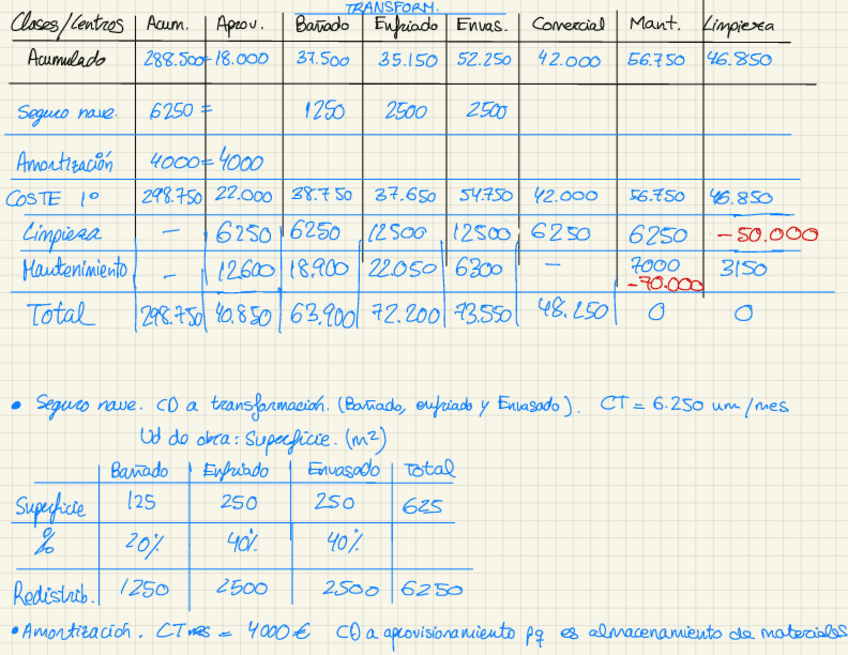 TRANSFORM.
Clases/Centros Acum. Aprov. Bañado Enfriado Envas. Comercial Mant. Limpieza
Acumulado 288.500= 18.000 37.500 35.150 52.250 42.000 56.750 46.850
Seguro nave. 6250 = 1250 2500 2500
Amortización 4000 = 4000
COSTE 1º 298.750 22.000 38.750 37.650 54.750 42.000 56.750 46.850
Limpieza — 6250 6250 12500 12500 6250 6250 -50.000
Mantenimiento — 12600 18.900 22.050 6300 — 7000 3150
-70.000
Total 298.750 40.850 63.900 72.200 73.550 48.250 0 0
• Seguro nave. CD a transformación. (Bañado, enfriado y Envasado). CT = 6.250 um/mes
Ud de obra: Superficie. (m²)
Bañado Enfriado Envasado Total
Superficie 125 250 250 625
% 20% 40% 40%
Redistrib. 1250 2500 2500 6250
• Amortización. CT mes = 4000 € CD a aprovisionamiento pq es almacenamiento de materiales